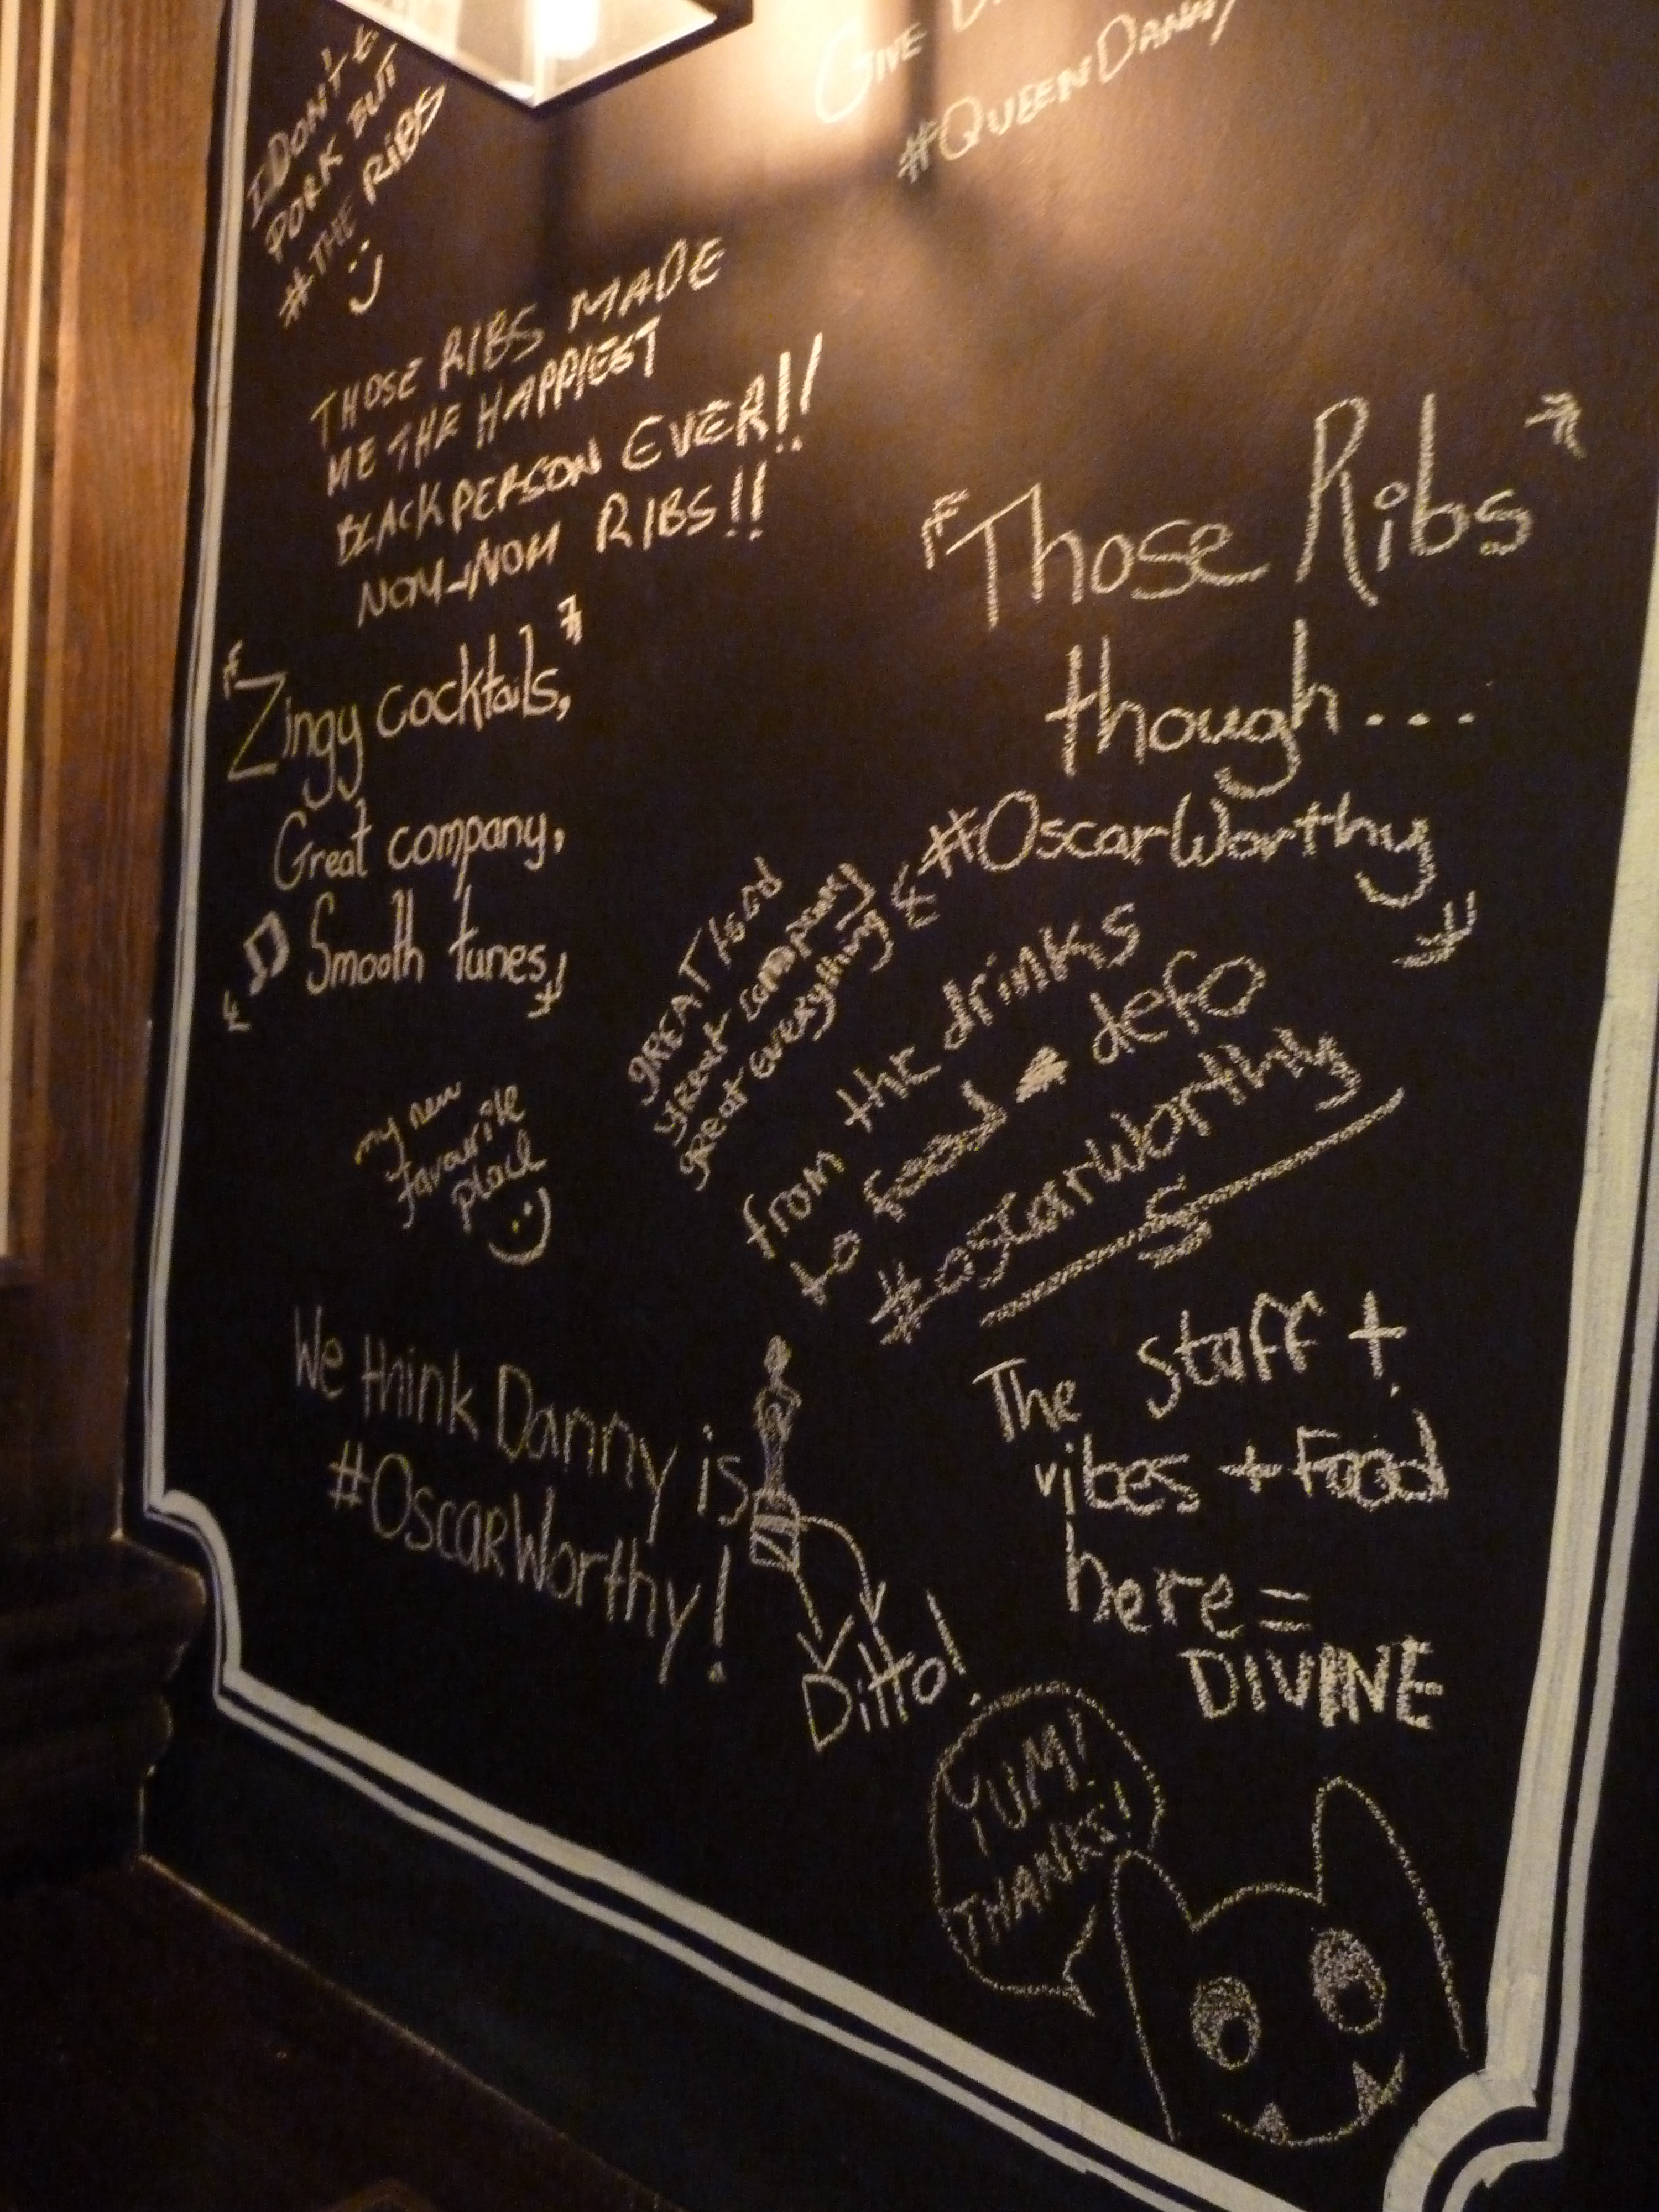 I DON'T
PORK BUT
#THE RIBS
GIVE
#QUEENDANNY
THOSE RIBS MADE
ME THE HAPPIEST
BLACK PERSON EVER!!
NOM-NOM RIBS!!
Those Ribs
though...
#OscarWorthy
Zingy cocktails,
Great company,
Smooth tunes,
GREAT food
great company
great everything
from the drinks
to food defo
#oscarworthy
my new
favourite
place
We think Danny is
#OscarWorthy!
Ditto!
The Staff +
vibes + Food
here =
DIVINE
YUM!
THANKS!